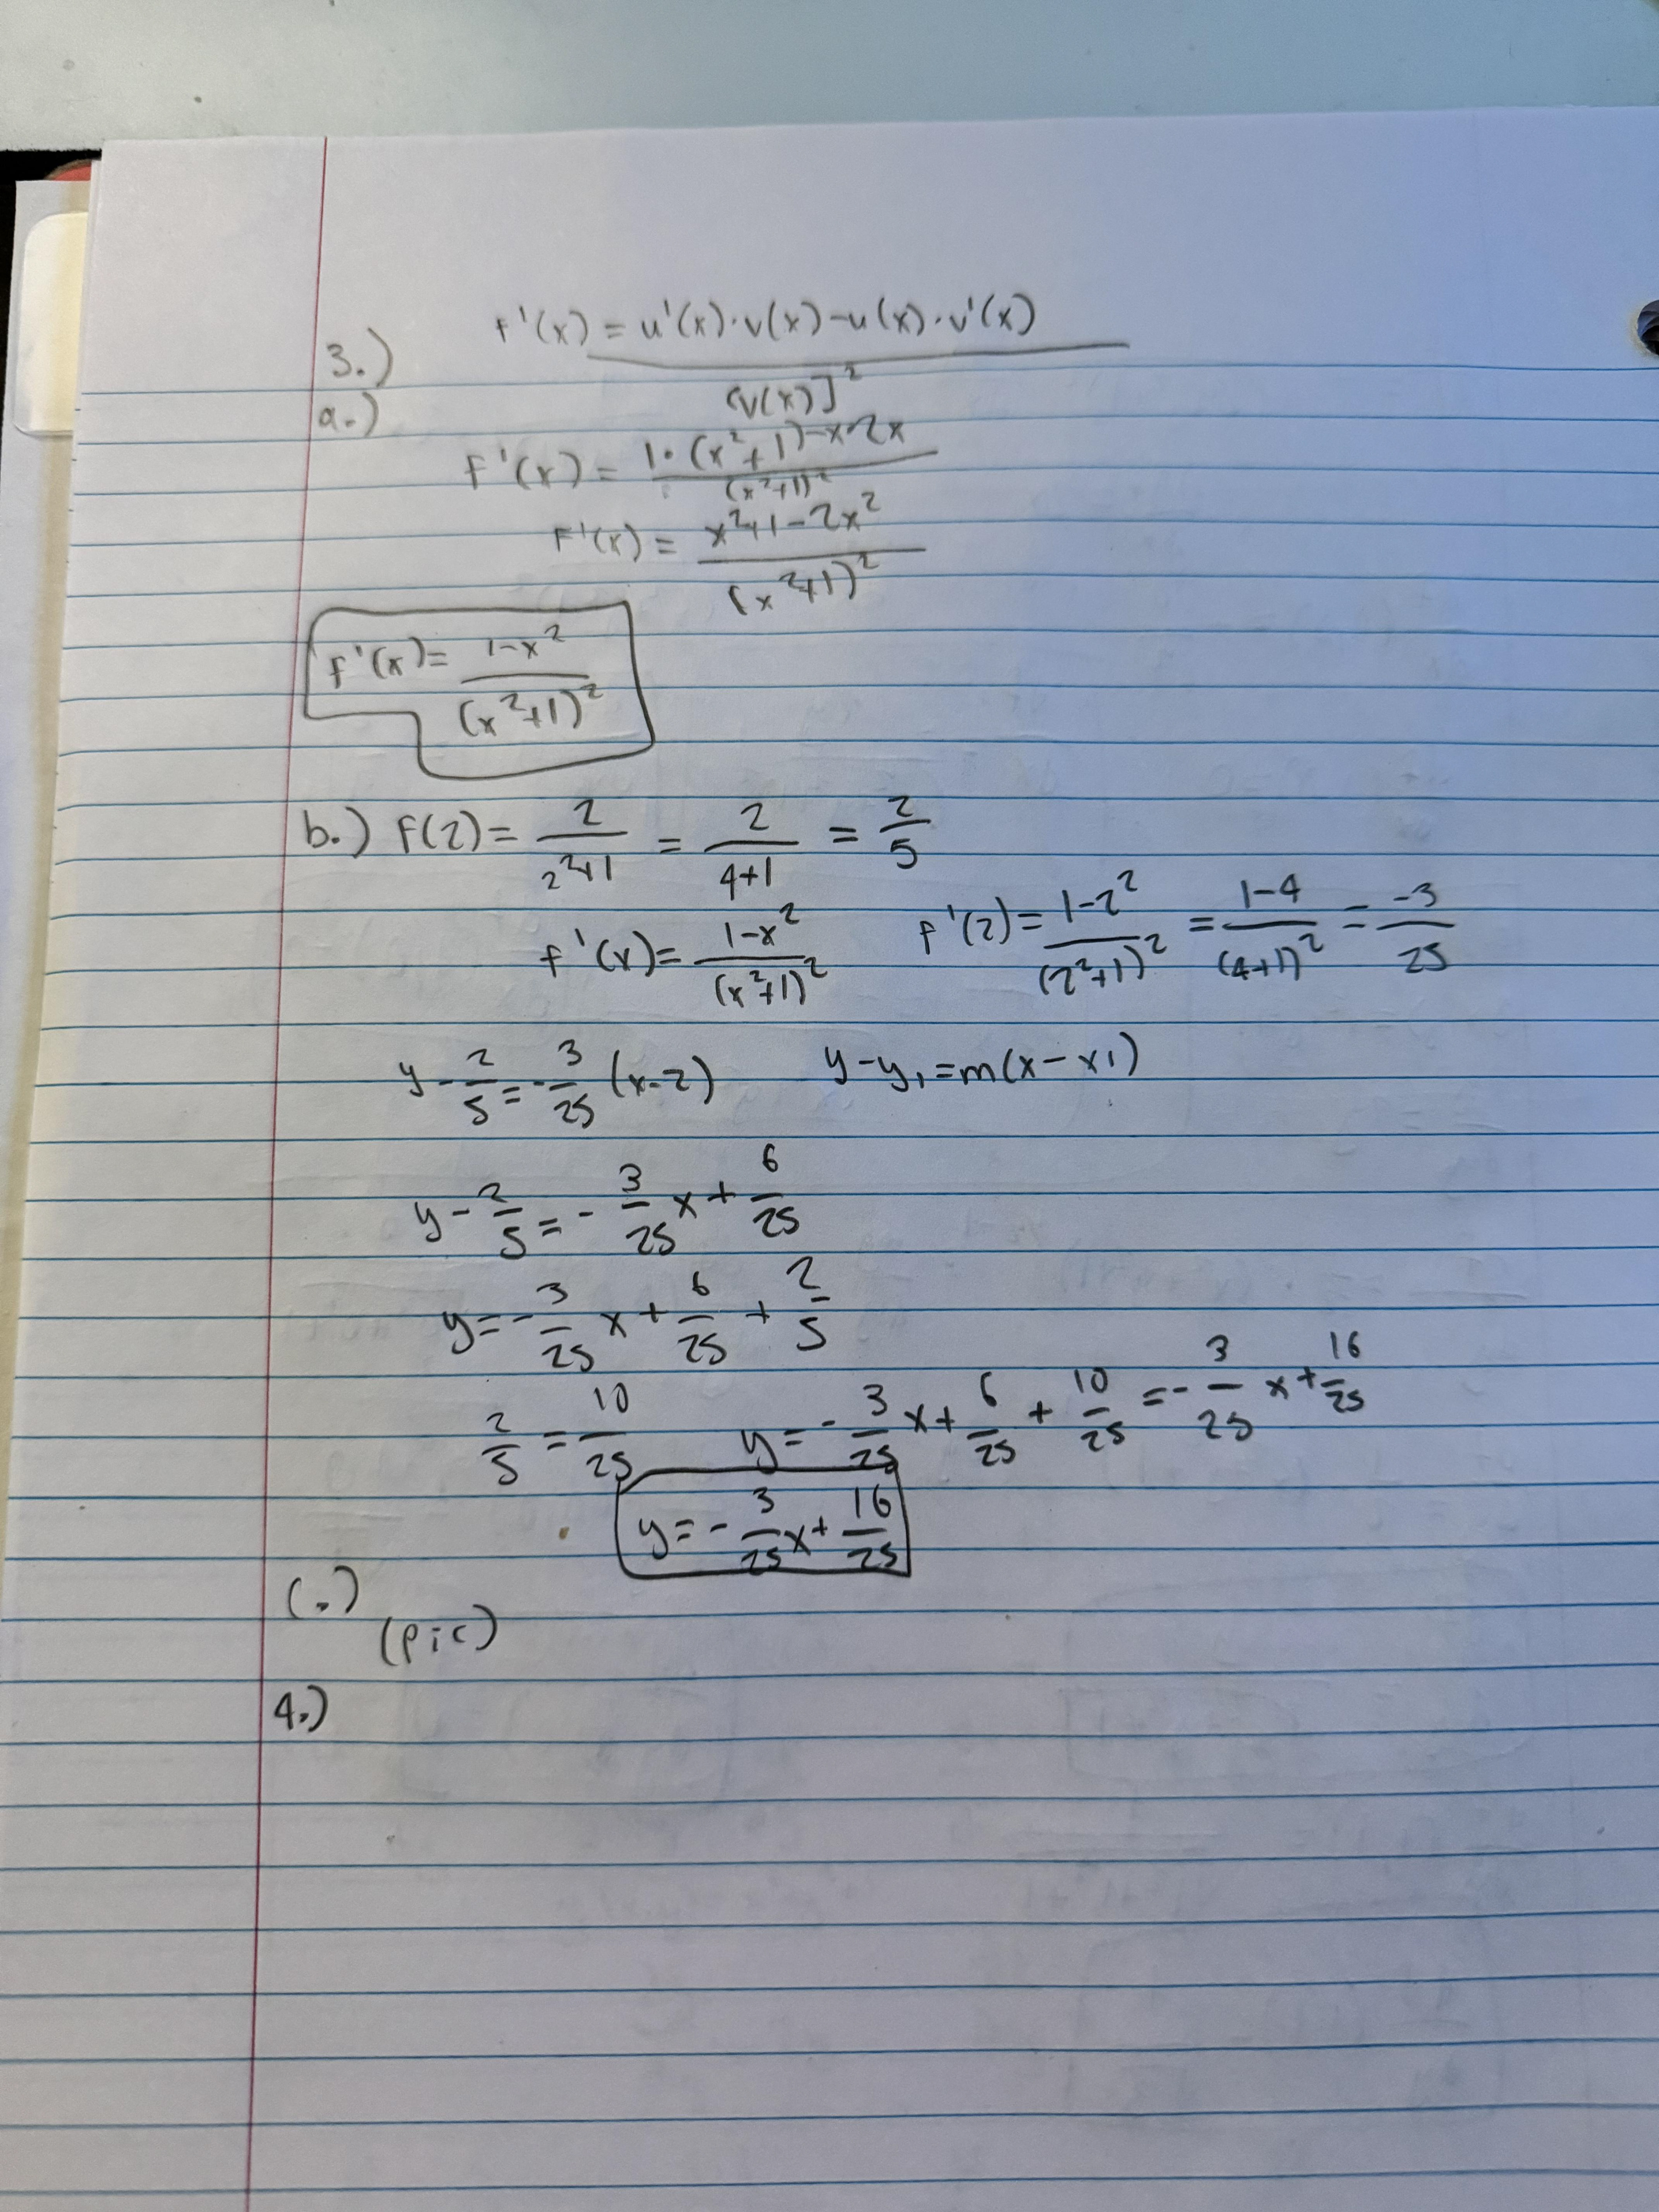 3.) f'(x) = u'(x)·v(x)-u(x)·v'(x)
(v(x)]²
a.)
f'(x) = 1·(x²+1)-x·2x
(x²+1)²
F'(x) = x²+1-2x²
(x²+1)²
f'(x)= 1-x²
(x²+1)²
b.) f(2)= 2/2²+1 = 2/4+1 = 2/5
f'(x)= 1-x²/(x²+1)² f'(2)= 1-2²/(2²+1)² = 1-4/(4+1)² = -3/25
y-2/5=-3/25(x-2) y-y₁=m(x-x1)
y-2/5=-3/25x+6/25
y=-3/25x+6/25+2/5
2/5=10/25 y=-3/25x+6/25+10/25=-3/25x+16/25
y=-3/25x+16/25
(.)
(pic)
4.)